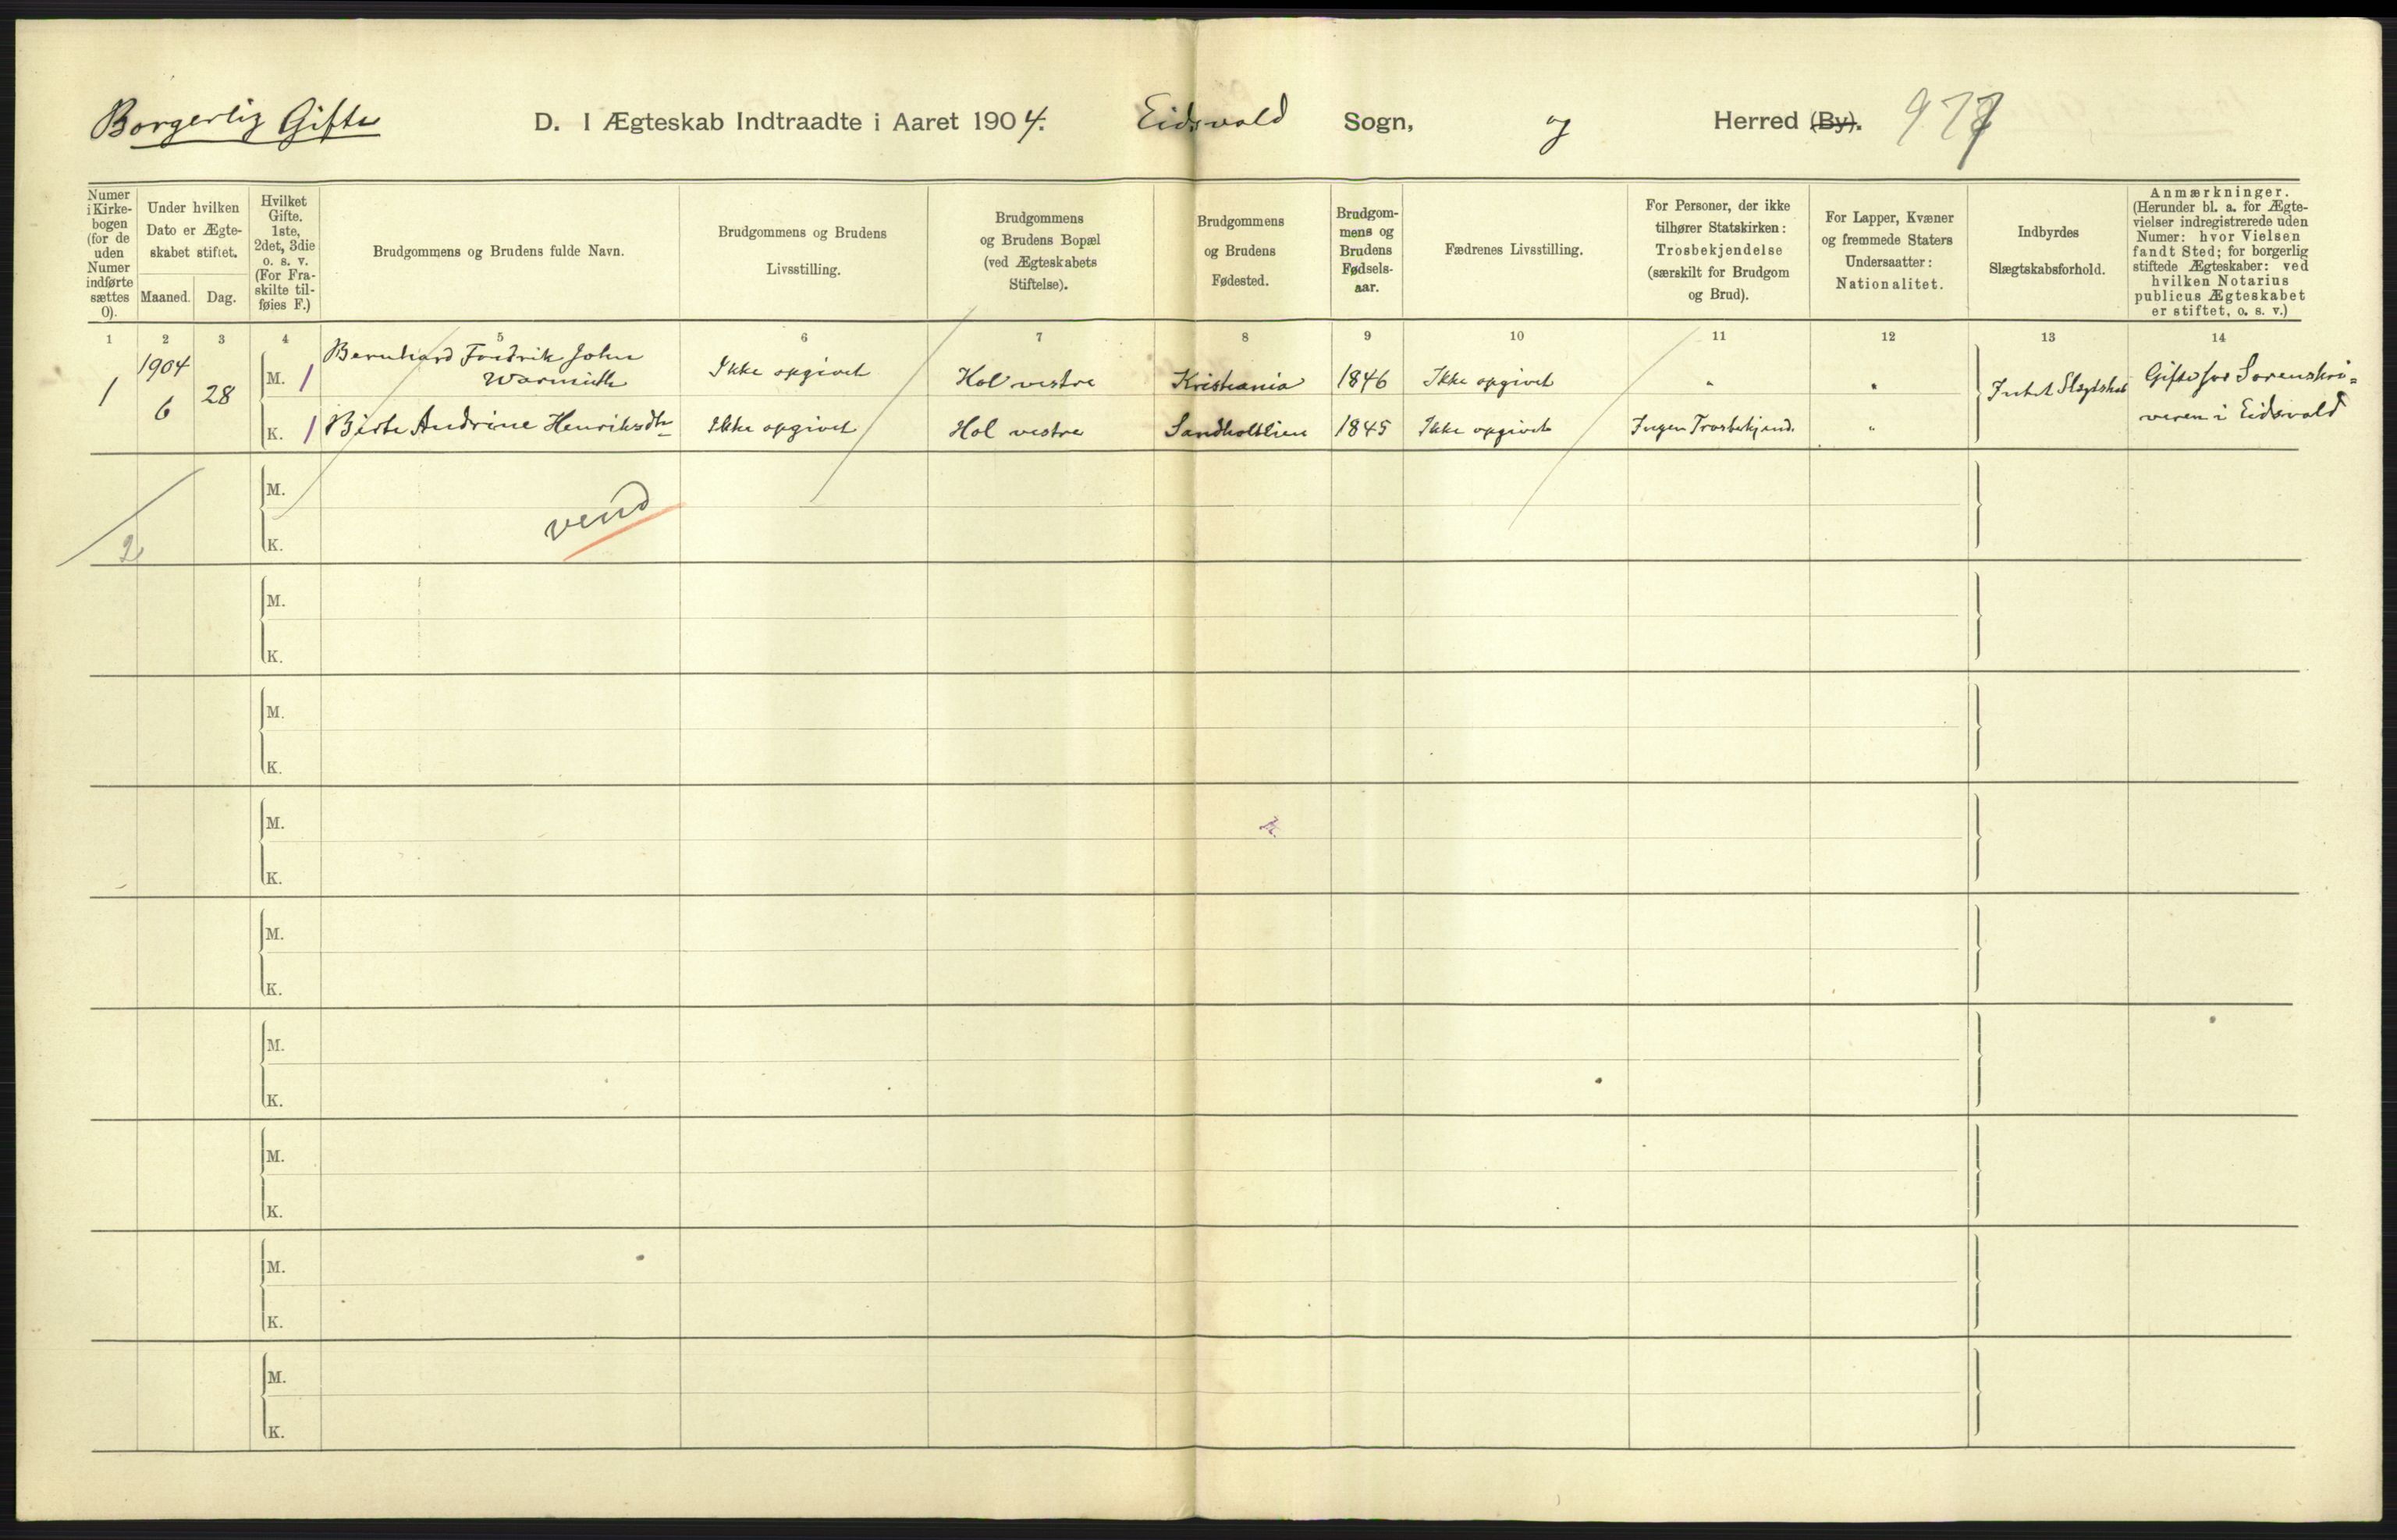 Borgerlig Gifte
D. I Ægteskab Indtraadte i Aaret 1904. Eidsvold Sogn, og Herred (By). 977
Numer i Kirke-bogen (for de uden Numer indførte sættes 0).
Under hvilken Dato er Ægte-skabet stiftet.
Maaned. Dag.
Hvilket Gifte. 1ste, 2det, 3die o. s. v. (For Fra-skilte til-føies F.)
Brudgommens og Brudens fulde Navn.
Brudgommens og Brudens Livsstilling.
Brudgommens og Brudens Bopæl (ved Ægteskabets Stiftelse).
Brudgommens og Brudens Fødested.
Brudgom-mens og Brudens Fødsels-aar.
Fædrenes Livsstilling.
For Personer, der ikke tilhører Statskirken: Trosbekjendelse (særskilt for Brudgom og Brud).
For Lapper, Kvæner og fremmede Staters Undersaatter: Nationalitet.
Indbyrdes Slægtskabsforhold.
Anmærkninger. (Herunder bl. a. for Ægte-vielser indregistrerede uden Numer: hvor Vielsen fandt Sted; for borgerlig stiftede Ægteskaber: ved hvilken Notarius publicus Ægteskabet er stiftet, o. s. v.)
1 2 3 4 5 6 7 8 9 10 11 12 13 14
1 1904 6 28
M. 1 Bernhard Fredrik John Warmuth Ikke opgivet Hol vestre Kristiania 1846 Ikke opgivet " " Intet Slægtskab Gifte for Sorenskri=
K. 1 Birte Andrine Henriksdtr Ikke opgivet Hol vestre Sandholtlien 1845 Ikke opgivet Ingen Trosbekjend. " veren i Eidsvold
M.
vend
2 K.
M.
K.
M.
K.
M.
K.
M.
K.
M.
K.
M.
K.
M.
K.
M.
K.